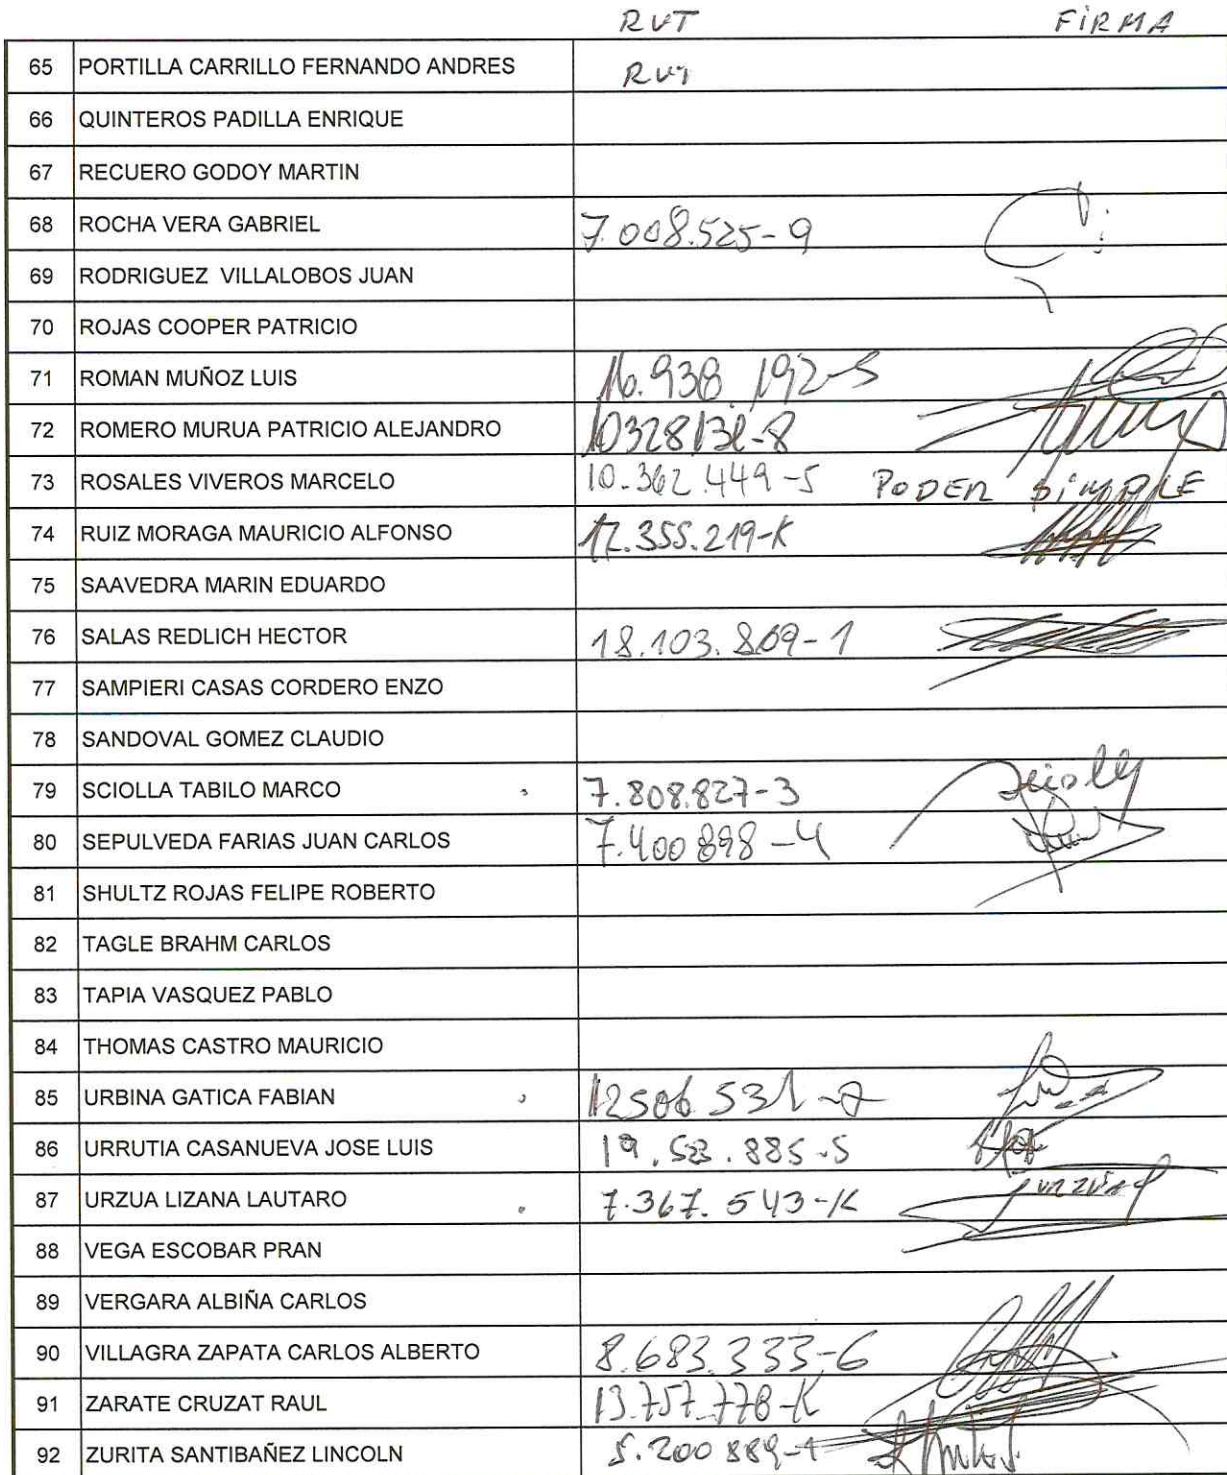 RUT FIRMA
65 PORTILLA CARRILLO FERNANDO ANDRES RUT
66 QUINTEROS PADILLA ENRIQUE
67 RECUERO GODOY MARTIN
68 ROCHA VERA GABRIEL 7.008.525-9
69 RODRIGUEZ VILLALOBOS JUAN
70 ROJAS COOPER PATRICIO
71 ROMAN MUÑOZ LUIS 16.938.192-5
72 ROMERO MURUA PATRICIO ALEJANDRO
73 ROSALES VIVEROS MARCELO 10.362.449-5 PODER SIMPLE
74 RUIZ MORAGA MAURICIO ALFONSO 12.355.219-K
75 SAAVEDRA MARIN EDUARDO
76 SALAS REDLICH HECTOR 18.103.869-1
77 SAMPIERI CASAS CORDERO ENZO
78 SANDOVAL GOMEZ CLAUDIO
79 SCIOLLA TABILO MARCO 7.808.827-3
80 SEPULVEDA FARIAS JUAN CARLOS 7.400898-4
81 SHULTZ ROJAS FELIPE ROBERTO
82 TAGLE BRAHM CARLOS
83 TAPIA VASQUEZ PABLO
84 THOMAS CASTRO MAURICIO
85 URBINA GATICA FABIAN
86 URRUTIA CASANUEVA JOSE LUIS
87 URZUA LIZANA LAUTARO 7.367.543-K
88 VEGA ESCOBAR PRAN
89 VERGARA ALBIÑA CARLOS
90 VILLAGRA ZAPATA CARLOS ALBERTO 8.683.333-6
91 ZARATE CRUZAT RAUL 13.757.778-K
92 ZURITA SANTIBAÑEZ LINCOLN 5.200889-1